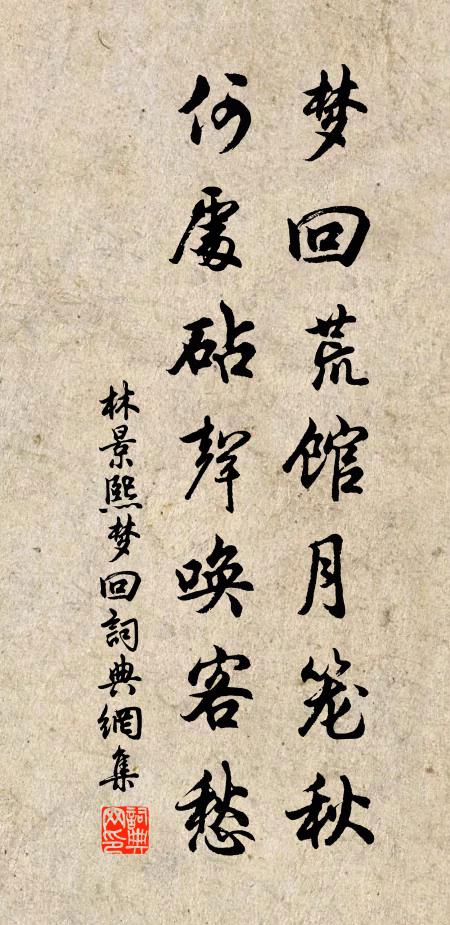 梦回荒馆月笼秋
何處砧聲唤客愁
林景熙梦回詞典網集
詞典網印